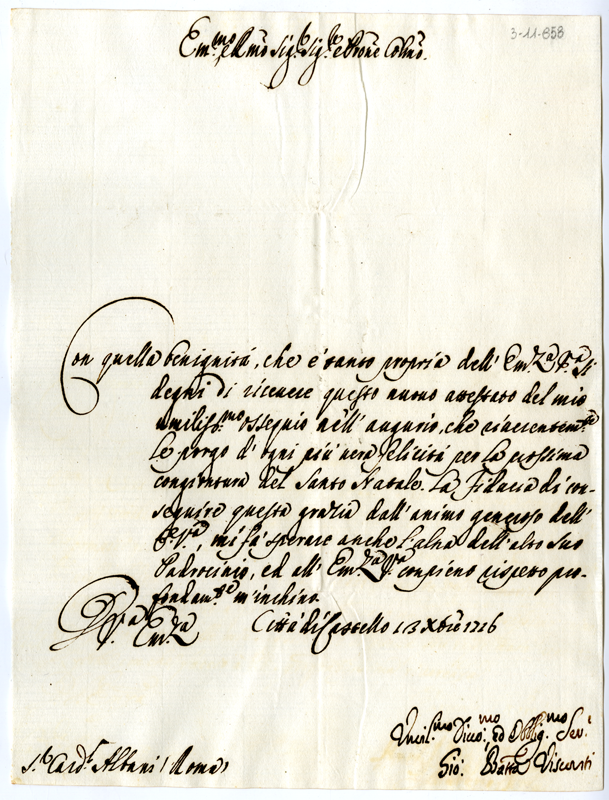 3-11-853
Em.mo e Rmo Sig.r Sig.r e Prone Colmo.
Con quella benignità, che è tanto propria dell' Em.za V.a si
degni di riceuere questo nuouo attestato del mio
umiliss.mo ossequio nell' augurio, che riuerentem.te
Le porgo d' ogni più uera felicità per la prossima
congiuntura del Santo Natale. La Fiducia di con-
seguire questa grazia dall' animo generoso dell'
E. V.a, mi fà sperare anche l'altra dell' alto suo
Padrocinio, ed all' Em.za V.a con pieno rispetto pro-
fondam.te m'inchino.
D. V.a Em.za Città di Castello 13 Xbre 1726
Umil.mo Diuo.mo, ed Obblig.mo Ser.
S.r Card.l Albani / Roma /
Gio: Batta Visconti